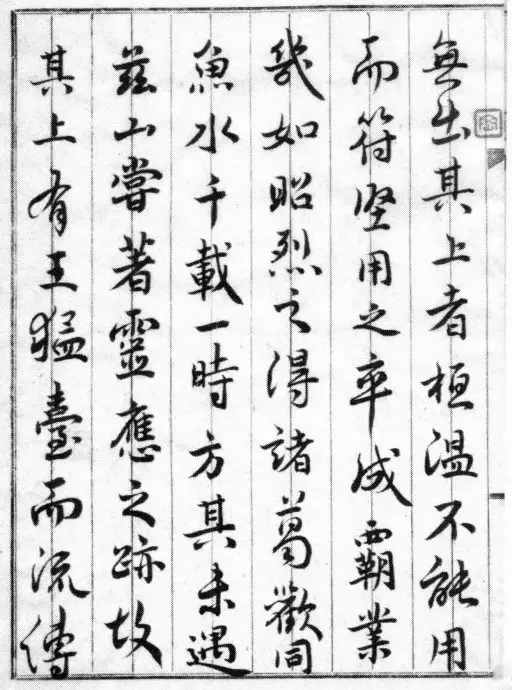 無出其上者桓温不能用
而符堅用之卒成霸業
幾如昭烈之得諸葛歡同
魚水千載一時方其未遇
茲山嘗著靈應之跡故
其上有王猛臺而流傳